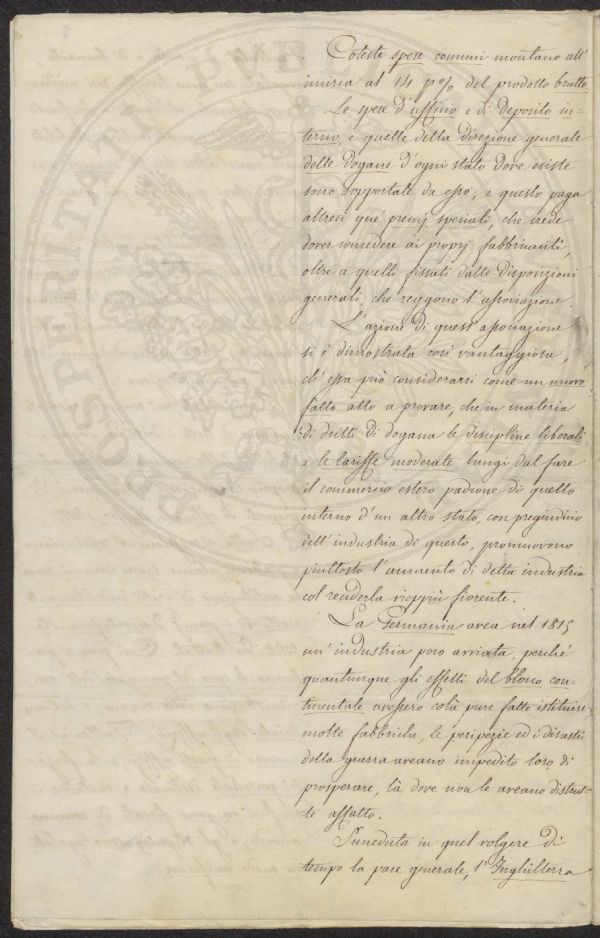 Coteste spese comuni montano all'
incirca al 14 p% del prodotto bratto.
Le spese d'ufficio e di Deposito in-
terno, e quelle della Direzione generale
delle Dogane d'ogni stato dove esiste
sono sopportate da esso; e questo paga
altresì que' premj speciali, che crede
dover concedere ai proprj fabbricanti,
oltre a quelli fissati dalle Disposizioni
generali, che reggono l'associazione.
L'azione di quest'associazione
si è dimostrata così vantaggiosa,
ch'essa può considerarsi come un nuovo
fatto atto a provare, che in materia
di dritti di dogana le discipline liberali
e le tariffe moderate, lungi dal fare
il commercio estero padrone di quello
interno d'un altro stato, con pregiudizio
dell'industria di questo, promuovono
piuttosto l'aumento di detta industria
col renderla vieppiù fiorente.
La Germania avea nel 1815
un'industria poco avviata, perchè
quantunque gli effetti del blocco con-
tinentale avessero colà pure fatte istituire
molte fabbriche, le peripezie ed i disastri
della guerra aveano impedito loro di
prosperare, là dove non le aveano distrut-
te affatto.
Succeduta in quel volgere di
tempo la pace generale, l'Inghilterra
PROSPERITAT